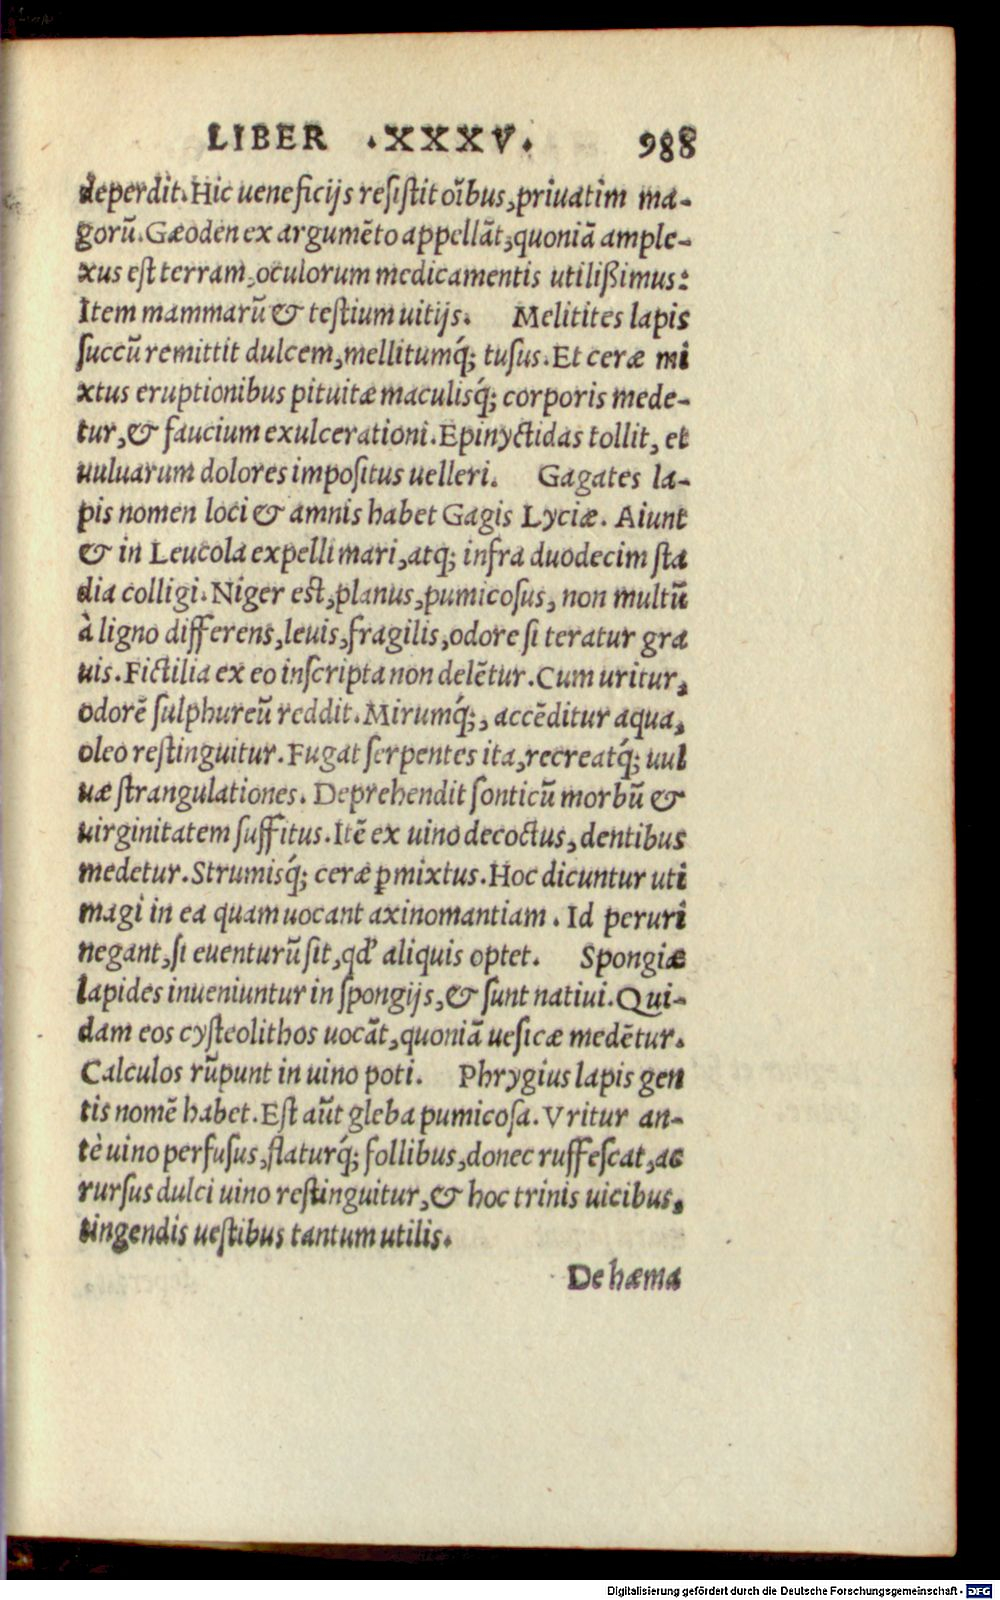 LIBER .XXXV. 988
deperdit. Hic ueneficijs resistit oĩbus, priuatim ma-
gorũ. Gæoden ex argumẽto appellãt, quoniã ample-
xus est terram, oculorum medicamentis utilißimus:
Item mammarũ & testium uitijs. Melitites lapis
succũ remittit dulcem, mellitumq́; tusus. Et ceræ mi
xtus eruptionibus pituitæ maculisq́; corporis mede-
tur, & faucium exulcerationi. Epinyctidas tollit, et
uuluarum dolores impositus uelleri. Gagates la-
pis nomen loci & amnis habet Gagis Lyciæ. Aiunt
& in Leucola expelli mari, atq; infra duodecim sta
dia colligi. Niger est, planus, pumicosus, non multũ
à ligno differens, leuis, fragilis, odore si teratur gra
uis. Fictilia ex eo inscripta non delẽtur. Cum uritur,
odorẽ sulphureũ reddit. Mirumq́;, accẽditur aqua,
oleo restinguitur. Fugat serpentes ita, recreatq́; uul
uæ strangulationes. Deprehendit sonticũ morbũ &
uirginitatem suffitus. Itẽ ex uino decoctus, dentibus
medetur. Strumisq́; ceræ ꝑmixtus. Hoc dicuntur uti
magi in ea quam uocant axinomantiam. Id peruri
negant, si euenturũ sit, qď aliquis optet. Spongiæ
lapides inueniuntur in spongijs, & sunt natiui. Qui-
dam eos cysteolithos uocãt, quoniã uesicæ medẽtur.
Calculos rũpunt in uino poti. Phrygius lapis gen
tis nomẽ habet. Est aũt gleba pumicosa. Vritur an-
tè uino perfusus, flaturq́; follibus, donec ruffescat, ac
rursus dulci uino restinguitur, & hoc trinis uicibus,
tingendis uestibus tantum utilis.
De hæma
Digitalisierung gefördert durch die Deutsche Forschungsgemeinschaft - DFG